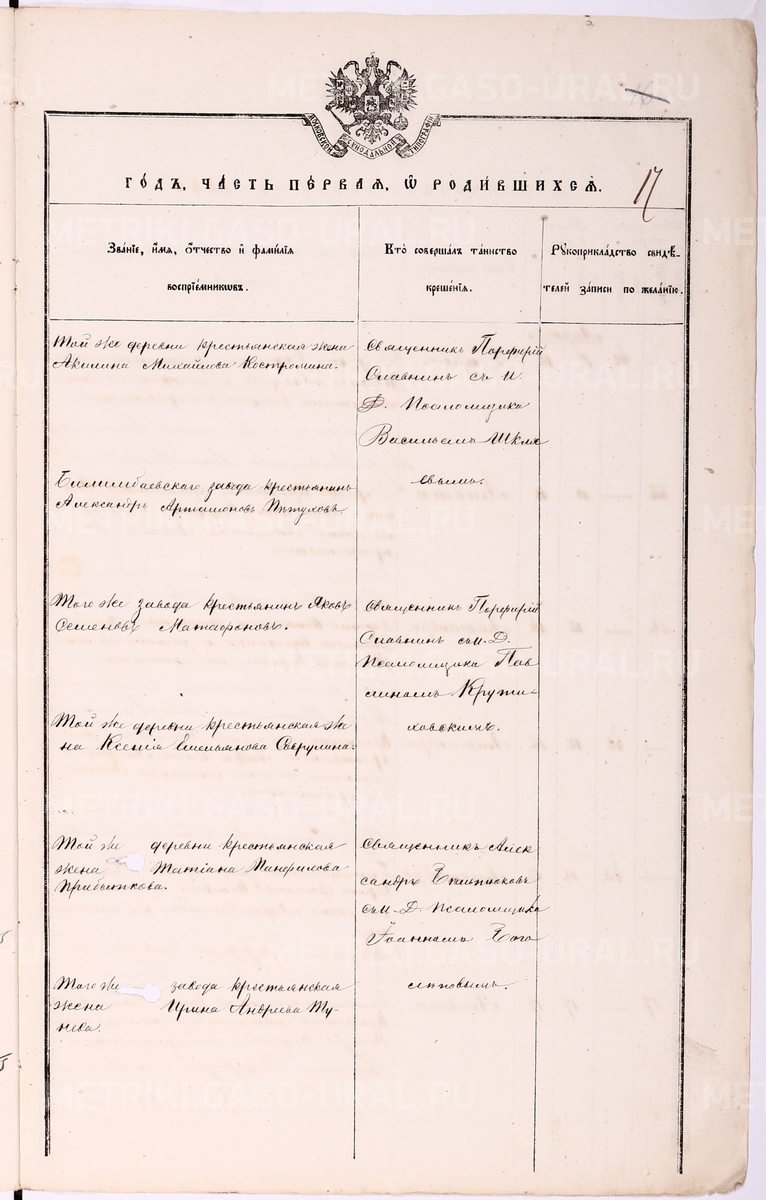 МОСКОВСКОЙ СИНОДАЛЬНОЙ ТИПОГРАФІИ
ГОДЪ, ЧАСТЬ ПЕРВАЯ, Ѡ РОДИВШИХСЯ.
17
Званіе, имя, отчество и фамилія
воспріемниковъ.
Кто совершалъ таинство
крещенія.
Рукоприкладство свидѣ-
телей записи по желанію.
Той же деревни крестьянская жена
Акилина Михайлова Костромина.
Священникъ Порфирій
Славнинъ съ И.
Д. Псаломщика
Васильемъ Шкля
евымъ.
Билимбаевскаго завода крестьянинъ
Александръ Артамоновъ Пѣтуховъ
Того же завода крестьянинъ Яковъ
Семеновъ Матафоновъ.
Священникъ Порфирій
Славнинъ съ И. Д.
Псаломщика Пав
линомъ Крути-
ховскимъ.
Той же деревни крестьянская же
на Ксенія Емельянова
Той же деревни крестьянская
жена Татіана Панфилова
Прибыткова.
Священникъ Алек
сандръ
съ И. Д. Псаломщика
Іоанномъ Бого
лѣповымъ.
Того же завода крестьянская
жена Ирина Андреева Ту-
нева.
METRIKI.GASO-URAL.RU